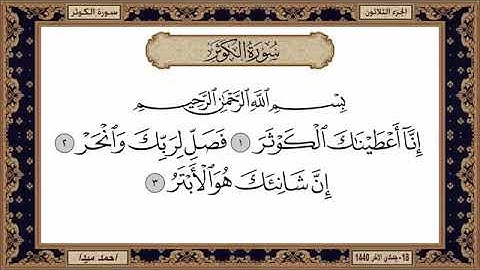 الجزء الثلاثون
سورة الكوثر
سُورَةُ الكَوْثَر
بِسْمِ اللَّهِ الرَّحْمَٰنِ الرَّحِيمِ
إِنَّآ أَعْطَيْنَاكَ الْكَوْثَرَ ١ فَصَلِّ لِرَبِّكَ وَانْحَرْ ٢
إِنَّ شَانِئَكَ هُوَ الْأَبْتَرُ ٣
18- جمادى الآخر 1440